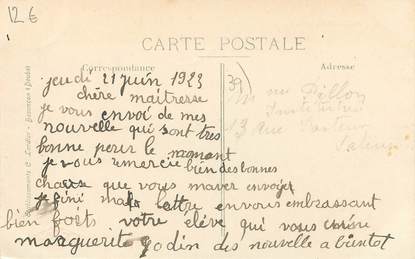 12 €
CARTE POSTALE
Correspondance
Adresse
39
jeudi 21 juin 1923
chère maitresse
je vous envoi de mes
nouvelle qui sont tres
bonne pour le moment
je vous remercie bien des bonnes
chose que vous maver envojer
je fini ma lettre en vous embrassant
bien forts votre élève qui vous
marguerite godin des nouvelle a bientot
Mme Billon
Institutrice
13 rue Pasteur